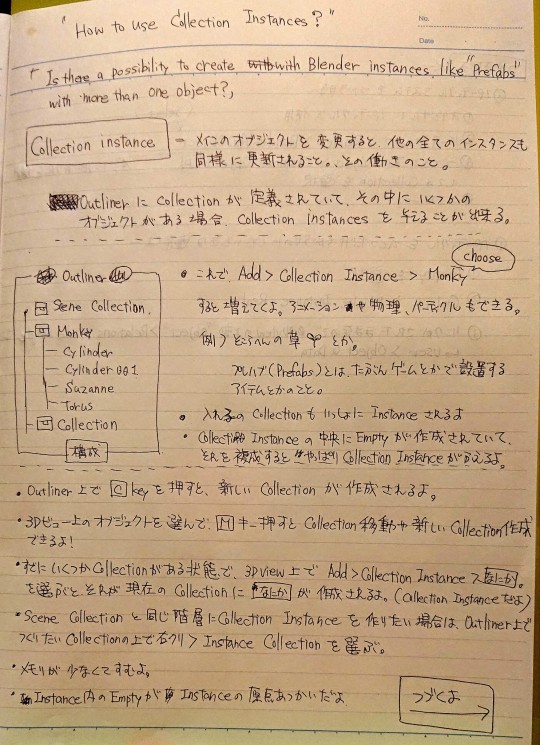 "How to use Collection Instances?"
No.
Date
「Is there a possibility to create with Blender instances, like "Prefabs"
with more than one object?」
Collection instance
- メインのオブジェクトを変更すると、他の全てのインスタンスも
同様に更新されること。その働きのこと。
Outliner に Collection が 定義されていて、その中に いくつかの
オブジェクトがある場合、Collection instances を 与えることが出来る。
Outliner
Scene Collection
Monky
Cylinder
Cylinder 001
Suzanne
Torus
Collection
構成
choose
• これで、Add > Collection Instance > Monky
すると増えてくよ。アニメーションや物理、パーティクルもできる。
例) どこらへんの草 とか。
プレハブ(Prefabs)とは、たぶんゲームとかで設置する
アイテムとかのこと。
• 入れ子の Collection も いっしょに Instance されるよ
• Collection Instance の中央に Empty が作成されていて、
それを複成すると やっぱり Collection Instance がふえるよ。
• Outliner 上で C key を押すと、新しい Collection が 作成されるよ。
• 3Dビュー上のオブジェクトを選んで、M キー押すと Collection 移動や新しい Collection 作成
できるよ!
• すでにいくつか Collection がある状態で、3D view 上で Add > Collection Instance > なにか。
を選ぶと、それが現在の Collection に "なにか" が 作成されるよ。(Collection Instance だよ)
• Scene Collection と同じ階層に Collection Instance を作りたい場合は Outliner 上で
つくりたい Collection の上で右クリ > Instance Collection を選ぶ。
• メモリが 少なくてすむよ。
• Instance 内の Empty が Instance の原点あつかいだよ
つづくよ